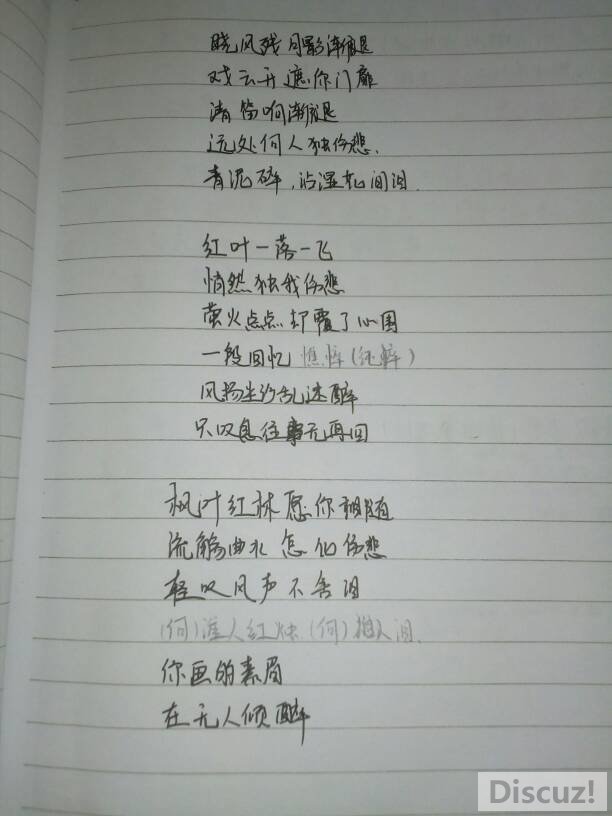 晓风残月影渐退
戏云开遮你门扉
清笛响渐退
远处何人独伤悲.
青泥碎,沾湿花间泪.
红叶一落一飞
悄然独我伤悲
萤火点点却覆了心围
一段回忆 憔悴(纯粹)
风扬尘沙乱迷醉
只叹息往事无再回
枫叶红林愿你相随
流觞曲水 怎化伤悲
轻叹风声不含泪
(何)人红 (何) 人泪.
你画的素眉
在无人倾醉
Discuz!